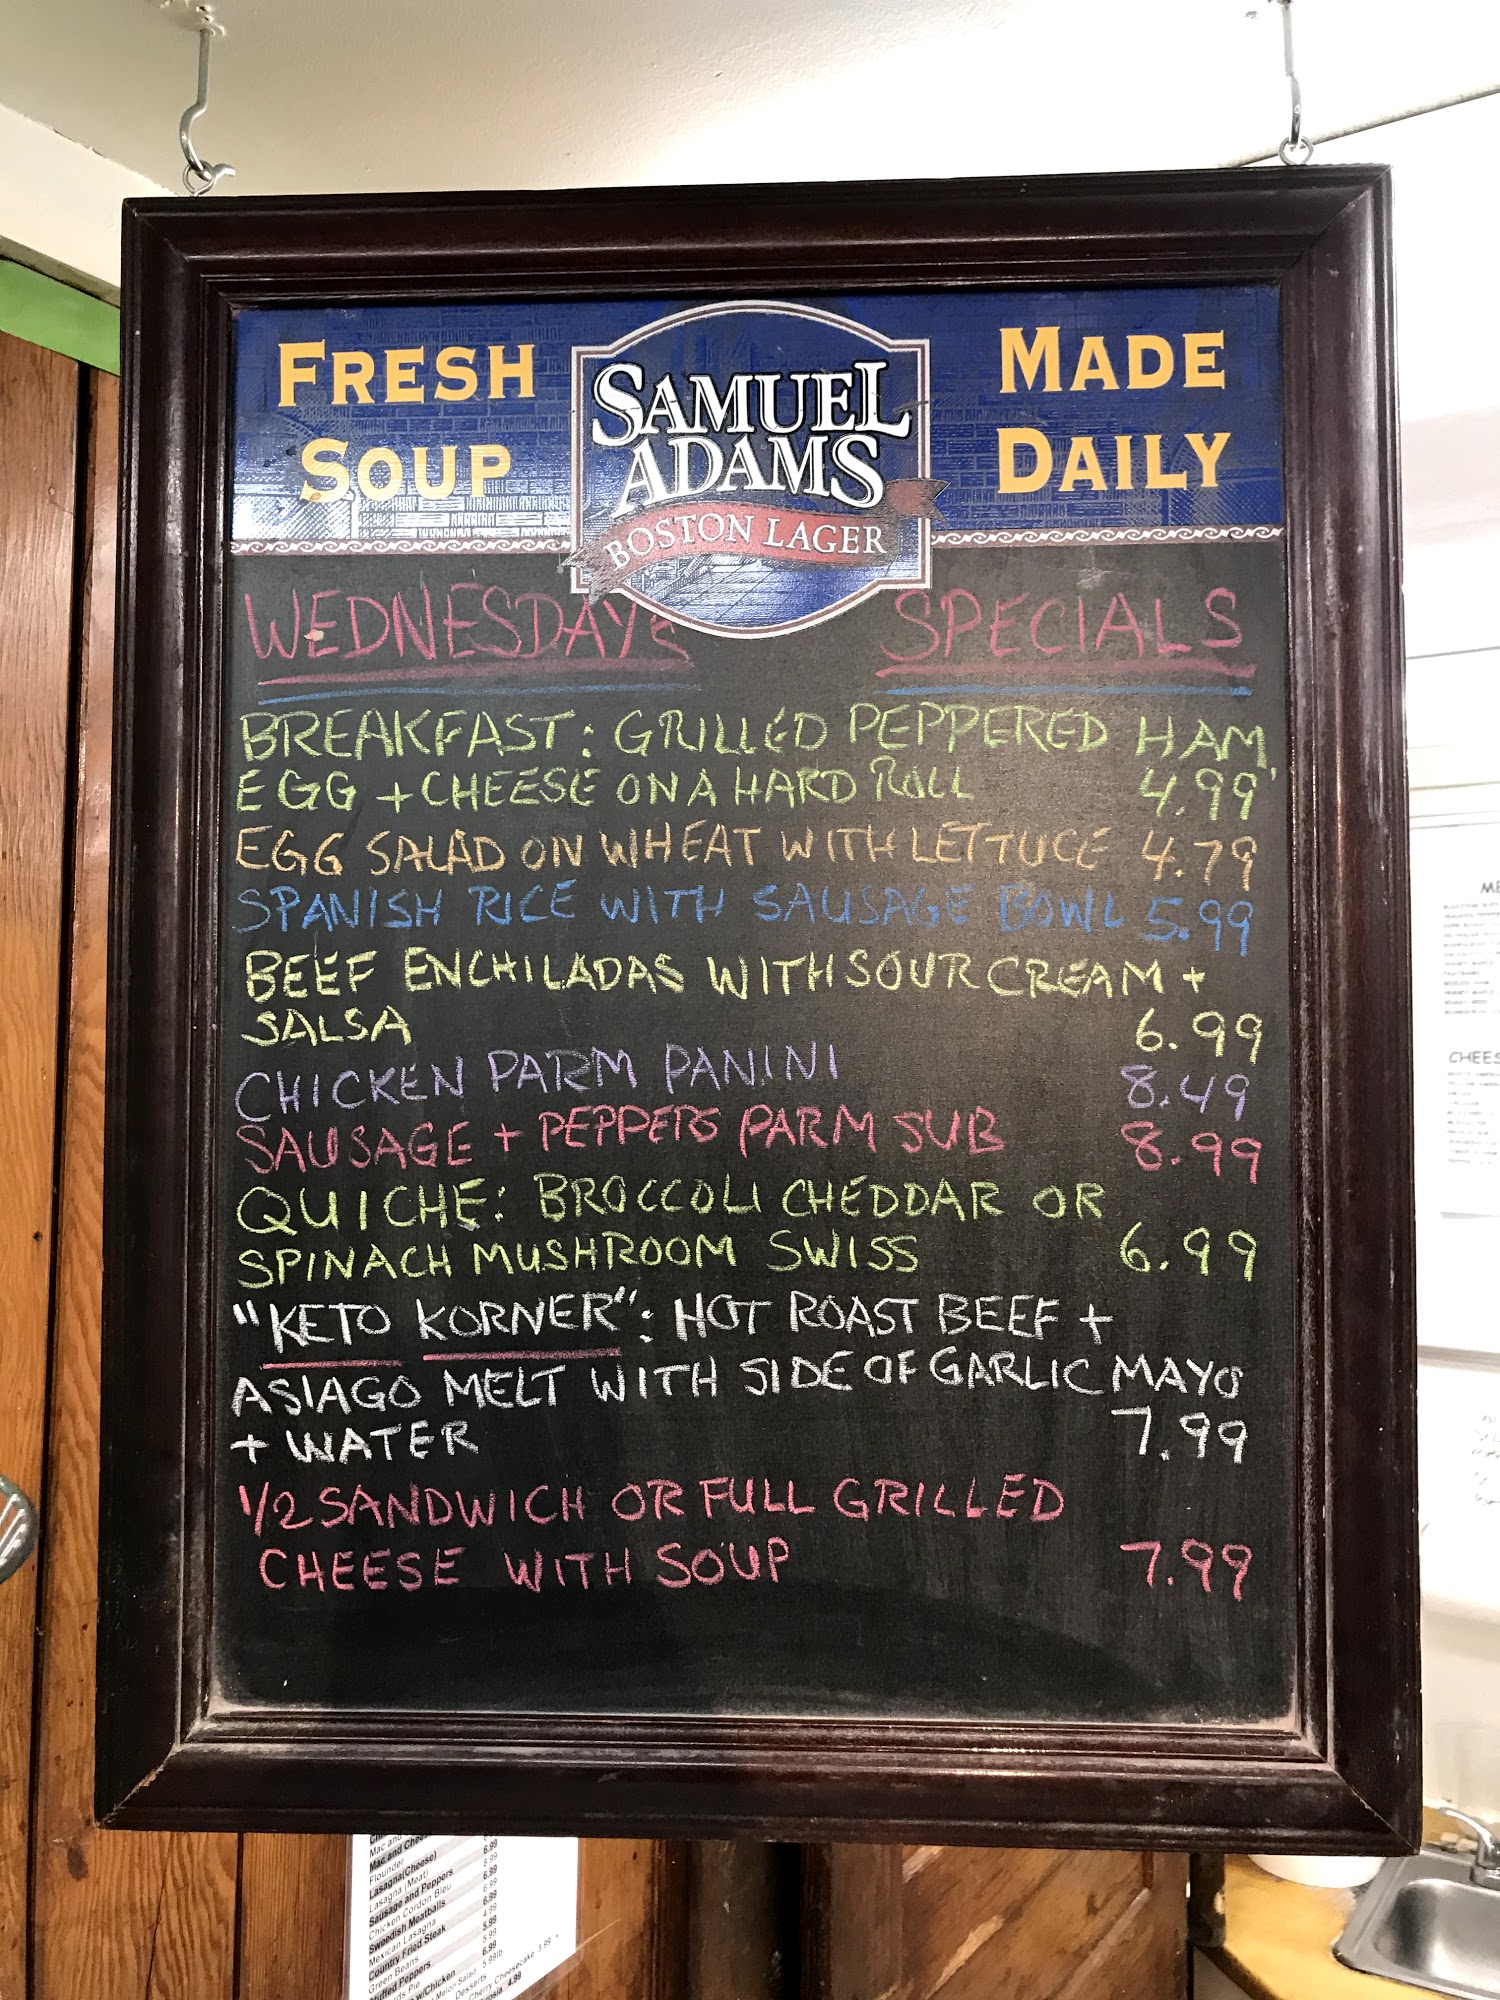 FRESH
SOUP
SAMUEL
ADAMS
BOSTON LAGER
MADE
DAILY
WEDNESDAYS SPECIALS
BREAKFAST: GRILLED PEPPERED HAM,
EGG + CHEESE ON A HARD ROLL 4.99
EGG SALAD ON WHEAT WITH LETTUCE 4.79
SPANISH RICE WITH SAUSAGE BOWL 5.99
BEEF ENCHILADAS WITH SOUR CREAM +
SALSA 6.99
CHICKEN PARM PANINI 8.49
SAUSAGE + PEPPERS PARM SUB 8.99
QUICHE: BROCCOLI CHEDDAR OR
SPINACH MUSHROOM SWISS 6.99
"KETO KORNER": HOT ROAST BEEF +
ASIAGO MELT WITH SIDE OF GARLIC MAYO
+ WATER 7.99
1/2 SANDWICH OR FULL GRILLED
CHEESE WITH SOUP 7.99
Mac and
Mac and Cheese
Flounder
Lasagna(Cheese)
Lasagna (Meat)
Sausage and Peppers
Chicken Cordon Bleu
Swedish Meatballs
Mexican Lasagna
Country Fried Steak
Green Beans
Stuffed Peppers
w/Chicken
Melon Salad 5.99lb
Desserts
Cherry Cheesecake 3.99
4.99
CHEES